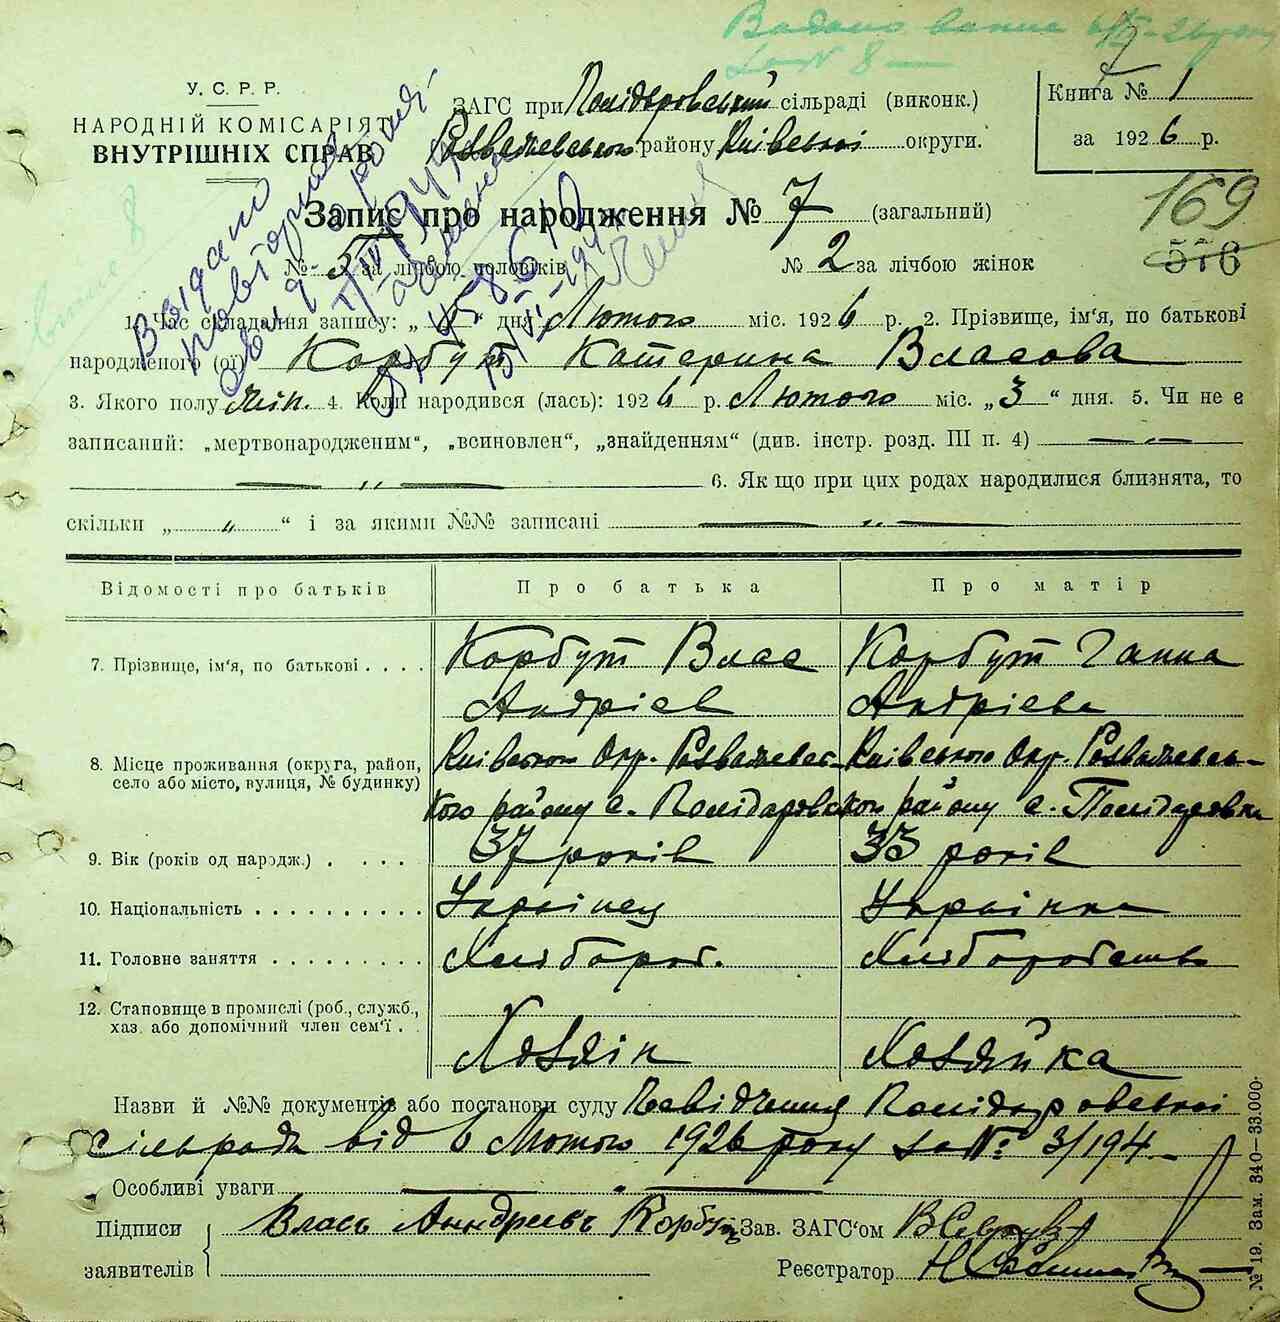 У. С. Р. Р.
НАРОДНІЙ КОМІСАРІЯТ
ВНУТРІШНІХ СПРАВ
ЗАГС при Полідаровський сільраді (виконк.)
Розважевського району Київської округи.
Книга № 1
за 1926 р.
7
169
576
Видано
повторна
Запис про народження № 7 (загальний)
№ 5 за лічбою чоловіків № 2 за лічбою жінок
1. Час складання запису: „ “ дня Лютого міс. 1926 р. 2. Прізвище, ім'я, по батькові
народженого (ої) Корбут Катерина Власова
3. Якого полу жін. 4. Коли народився (лась): 1926 р. Лютого міс. „3“ дня. 5. Чи не є
записаний: „мертвонародженим“, „всиновлен“, „знайденням“ (див. інстр. розд. III п. 4) — „ —
— „ — 6. Як що при цих родах народилися близнята, то
скільки „ „ “ і за якими №№ записані — „ —
Відомості про батьків Про батька Про матір
7. Прізвище, ім'я, по батькові . . . . Корбут Влас Корбут Ганна
Андрієв Андрієва
8. Місце проживання (округа, район, Київського Окр. Розважевсь- Київського Окр. Розважевсь-
село або місто, вулиця, № будинку) кого району с. Полідаровка кого району с. Полідаровка
9. Вік (років од народж.) . . . . . 37 років 33 років
10. Національність . . . . . . . . . . Українец Українка
11. Головне заняття . . . . . . . . . Хлябороб. Хляборобство
12. Становище в промислі (роб., служб.,
хаз. або допомічний член сем'ї . . Хозяін Хозяйка
Назви й №№ документів або постанови суду Посвідчення Полідаровської
сільради від 6 Лютого 1926 року за № 3/194
Особливі уваги — „ —
Підписи Влась Анндреевъ Корбут Зав. ЗАГС'ом
заявителів Реєстратор
№ 19. Зам. 340—33.000.